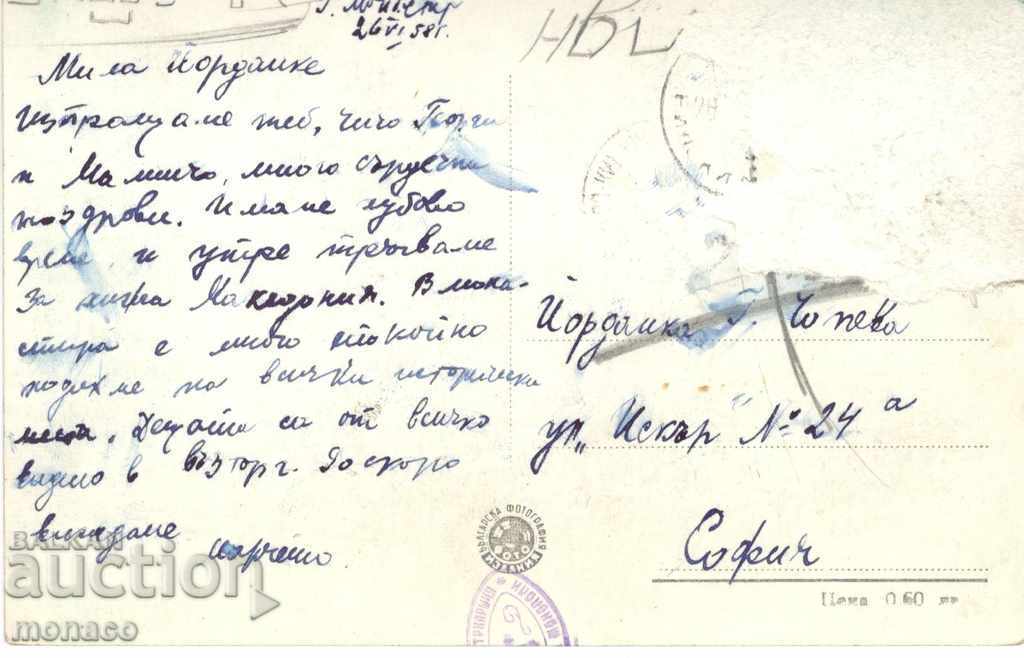 26 VI 58 г.
Мила Йорданке
изпращаме теб, чичо Георги
и Мамичо, много сърдечни
поздрави. Имаме хубаво
време, и утре тръгваме
за хижа Македония. В мона-
стира е много спокойно
ходихме на всички исторически
места. Децата са от всичко
видяно в възторг. До скоро
виждане
Йорданка Г. Чонева
ул. Искър № 24 а
София
БЪЛГАРСКА ФОТОГРАФИЯ
ИЗДАНИЯ
Цена 0.60 лв
БАЛКАН
auction
monaco